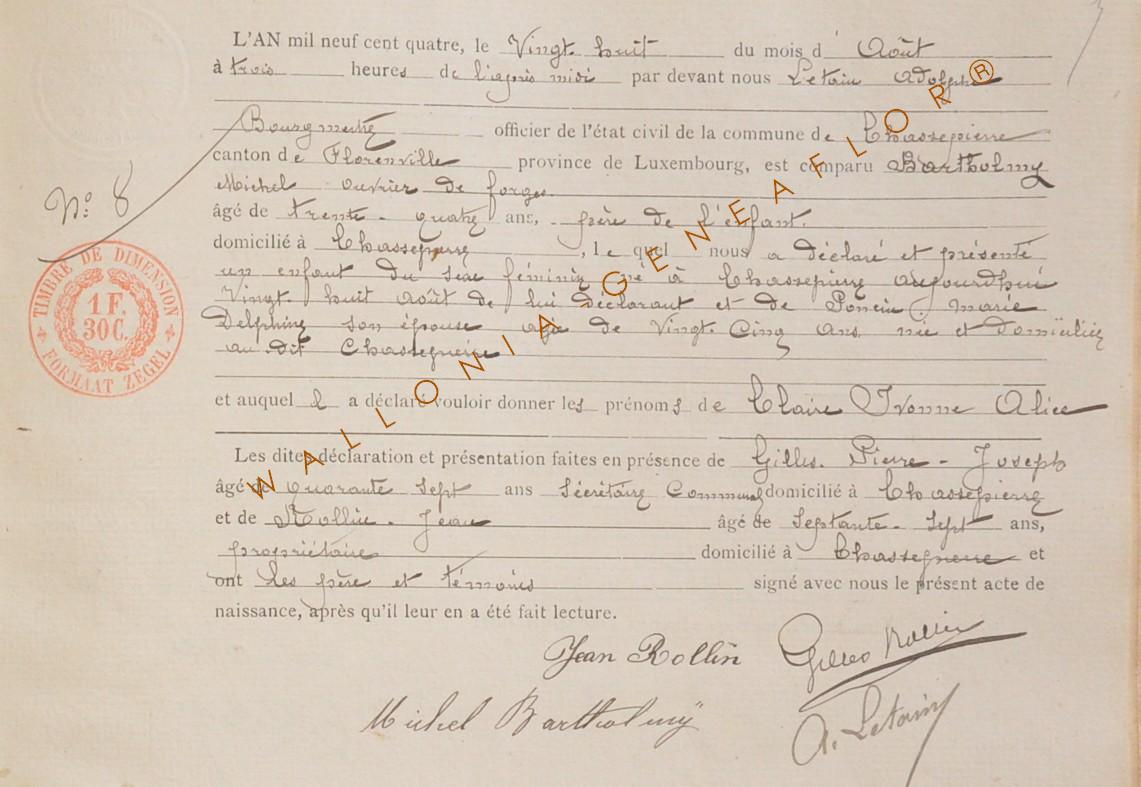 L'AN mil neuf cent quatre, le Vingt huit du mois d' Août
à trois heures de l'après midi par devant nous Letain Adolphe
Bourgmestre officier de l'état civil de la commune de Chassepierre
canton de Florenville province de Luxembourg, est comparu Bartholmy
Michel ouvrier de forges
N° 8
âgé de trente-quatre ans, père de l'enfant.
domicilié à Chassepierre, le quel nous a déclaré et présenté
un enfant du sexe féminin né à Chassepierre aujourdhui
Vingt huit août de lui déclarant et de Poncin Marie
Delphine son épouse agée de Vingt-Cinq ans née et domiciliée
au dit Chassepierre
TIMBRE DE DIMENSION
1 F.
30 C.
FORMAAT ZEGEL
et auquel il a déclaré vouloir donner les prénoms de Claire Yvonne Alice
Les dites déclaration et présentation faites en présence de Gilles Pierre-Joseph
âgé de quarante sept ans Sécrétaire Communal domicilié à Chassepierre
et de Rollin-Jean âgé de Septante-Sept ans,
propriétaire domicilié à Chassepierre et
ont les père et témoins signé avec nous le présent acte de
naissance, après qu'il leur en a été fait lecture.
Jean Rollin Gilles
Michel Bartholmy A. Letain
WALLONIA-GENEAFLOR®